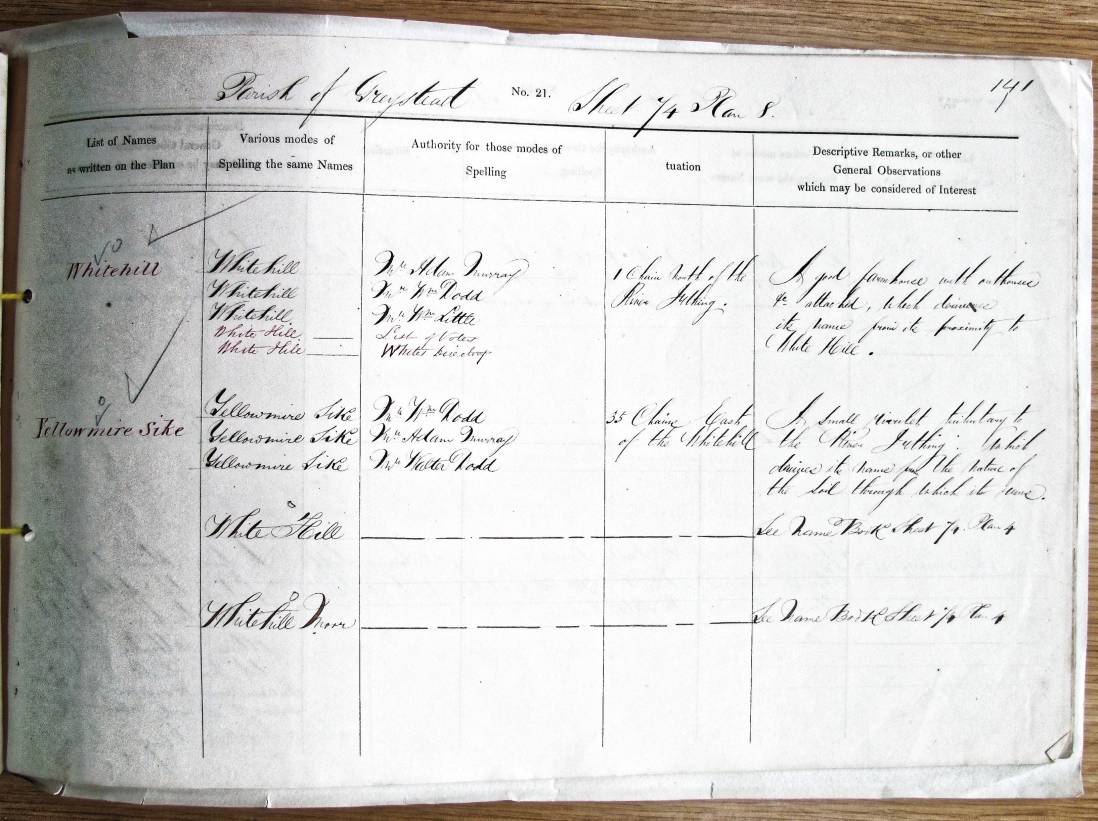 141
Parish of Greystead No. 21. Sheet 74 Plan 8.
List of Names
as written on the Plan
Various modes of
Spelling the same Names
Authority for those modes of
Spelling
tuation
Descriptive Remarks, or other
General Observations
which may be considered of Interest
Whitehill
Whitehill Mr. Adam Murray 1 Chain North of the A good farmhouse with outhouses
Whitehill Mr. Wm Dodd River Irthing. &c attached, which derives
Whitehill Mr. Wm Little its name from its proximity to
White Hill List of Votes White Hill.
White Hill Whites Directory
Yellowmire Sike
Yellowmire Sike Mr. Wm Dodd 35 Chains East A small rivulet tributary to
Yellowmire Sike Mr. Adam Murray of the Whitehill the River Irthing which
Yellowmire Sike Mr. Walter Dodd derives its name from the nature of
the soil through which it runs.
White Hill See Name Book Sheet 74 Plan 4
Whitehill Moor See Name Book Sheet 74 Plan 4